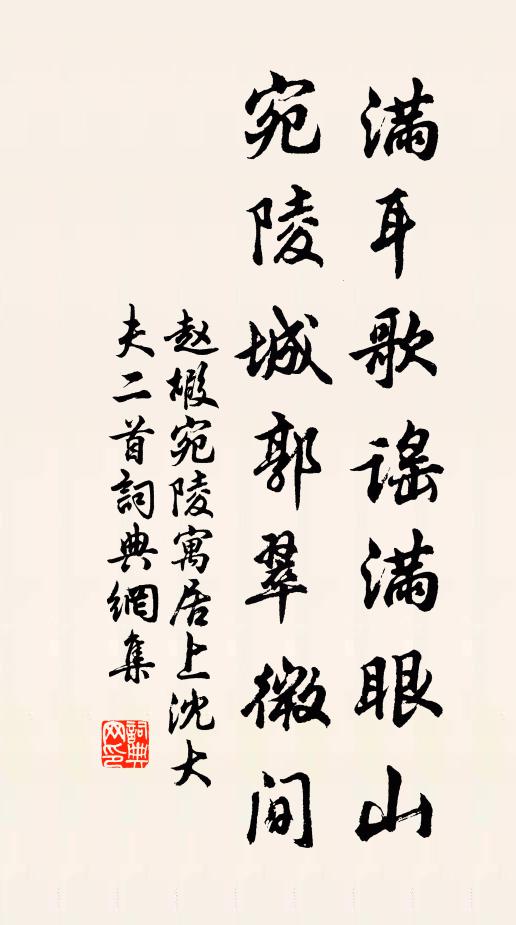 满耳歌谣满眼山
宛陵城郭翠微间
赵嘏宛陵寓居上沈大
夫二首詞典網集
詞典网印